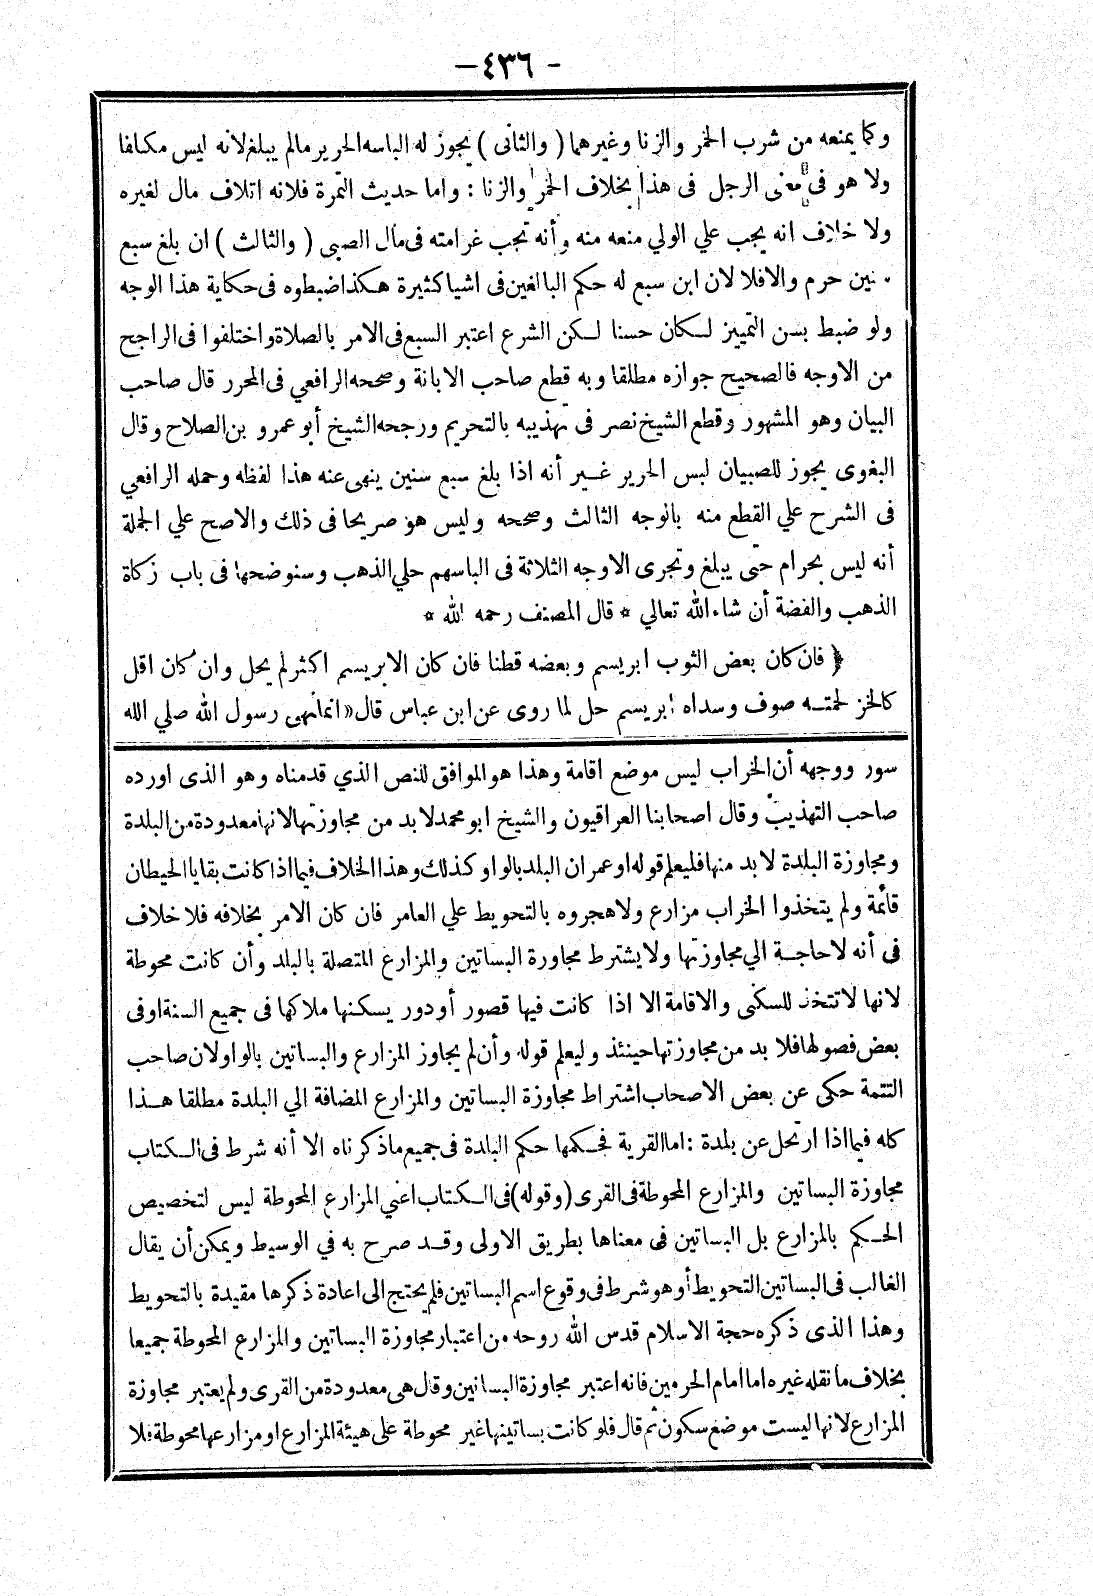 - ٤٣٦ -
وكما يمنعه من شرب الخمر والزنا وغيرهما ( والثانى ) يجوز له الباسه الحرير مالم يبلغ لانه ليس مكلفا
ولا هو فى معنى الرجل فى هذا بخلاف الخمر والزنا : واما حديث التمرة فلانه اتلاف مال لغيره
ولا خلاف انه يجب علي الولي منعه منه وأنه تجب غرامته فى مال الصبى ( والثالث ) ان بلغ سبع
نين حرم والافلا لان ابن سبع له حكم البالغين فى اشيا كثيرة هكذا ضبطوه فى حكاية هذا الوجه
ولو ضبط بسن التمييز لكان حسنا لكن الشرع اعتبر السبع فى الامر بالصلاة واختلفوا فى الراجح
من الاوجه فالصحيح جوازه مطلقا وبه قطع صاحب الابانة وصححه الرافعي فى المحرر قال صاحب
البيان وهو المشهور وقطع الشيخ نصر فى تهذيبه بالتحريم ورجحه الشيخ أبو عمرو بن الصلاح وقال
البغوى يجوز للصبيان لبس الحرير غير أنه اذا بلغ سبع سنين ينهى عنه هذا لفظه وحمله الرافعي
فى الشرح علي القطع منه بالوجه الثالث وصححه وليس هو صريحا فى ذلك والاصح علي الجملة
أنه ليس بحرام حتى يبلغ وتجرى الاوجه الثلاثة فى الباسهم حلي الذهب وسنوضحها فى باب زكاة
الذهب والفضة أن شاء الله تعالي * قال المصنف رحمه الله *
﴿ فان كان بعض الثوب ابريسم وبعضه قطنا فان كان الابريسم اكثر لم يحل وان كان اقل
كالخز لحمته صوف وسداه ابريسم حل لما روى عن ابن عباس قال « انما نهى رسول الله صلي الله
سور ووجهه أن الخراب ليس موضع اقامة وهذا هو الموافق للنص الذي قدمناه وهو الذى اورده
صاحب التهذيب وقال اصحابنا العراقيون والشيخ ابو محمد لا بد من مجاوزتها لانها معدودة من البلدة
ومجاوزة البلدة لا بد منها فليعلم قوله او عمران البلد بالواو كذلك وهذا الخلاف فيما اذا كانت بقايا الحيطان
قائمة ولم يتخذوا الخراب مزارع ولا هجروه بالتحويط علي العامر فان كان الامر بخلافه فلا خلاف
فى أنه لا حاجة الي مجاوزتها ولا يشترط مجاورة البساتين والمزارع المتصلة بالبلد وأن كانت محوطة
لانها لا تتخذ للسكنى والاقامة الا اذا كانت فيها قصور أو دور يسكنها ملاكها فى جميع السنة او فى
بعض فصولها فلا بد من مجاوزتها حينئذ وليعلم قوله وأن لم يجاوز المزارع والبساتين بالواو لان صاحب
التتمة حكى عن بعض الاصحاب اشتراط مجاوزة البساتين والمزارع المضافة الي البلدة مطلقا هذا
كله فيما اذا ارتحل عن بلدة : اما القرية فحكمها حكم البلدة فى جميع ما ذكرناه الا أنه شرط فى الكتاب
مجاوزة البساتين والمزارع المحوطة فى القرى ( وقوله ) فى الكتاب اعني المزارع المحوطة ليس لتخصيص
الحكم بالمزارع بل البساتين فى معناها بطريق الاولى وقد صرح به في الوسيط ويمكن أن يقال
الغالب فى البساتين التحويط أو هو شرط فى وقوع اسم البساتين فلم يحتج الى اعادة ذكرها مقيدة بالتحويط
وهذا الذى ذكره حجة الاسلام قدس الله روحه من اعتبار مجاوزة البساتين والمزارع المحوطة جميعا
بخلاف ما نقله غيره اما امام الحرمين فانه اعتبر مجاوزة البساتين وقال هى معدودة من القرى ولم يعتبر مجاوزة
المزارع لانها ليست موضع سكون ثم قال فلو كانت بساتينها غير محوطة على هيئة المزارع او مزارعها محوطة فلا